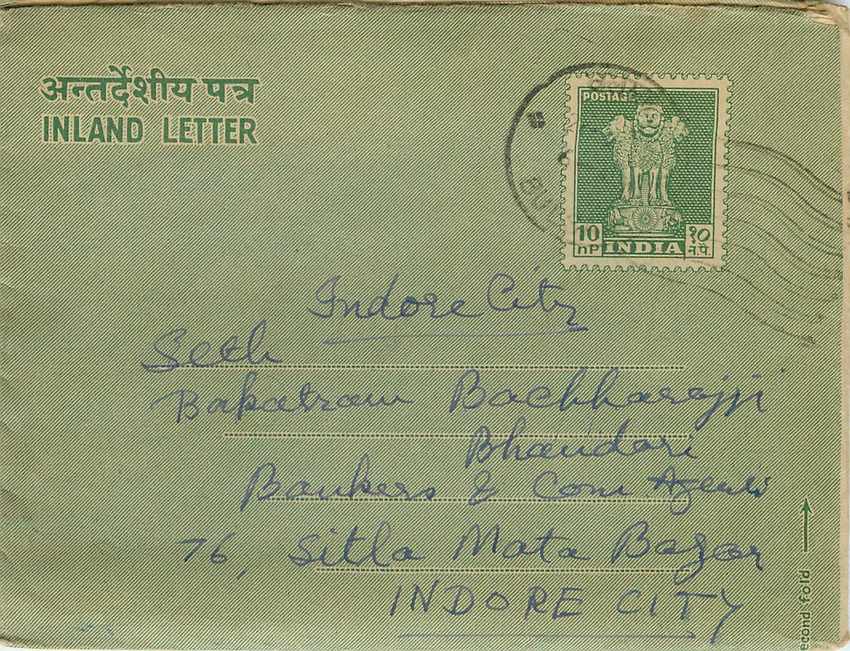 अन्तर्देशीय पत्र
INLAND LETTER
POSTAGE
10 nP INDIA १० न.पै.
Indore City
Seth
Bakatram Bachharajji
Bhandari
Bankers & Com Agents
76, Sitla Mata Bazar
INDORE CITY
second fold